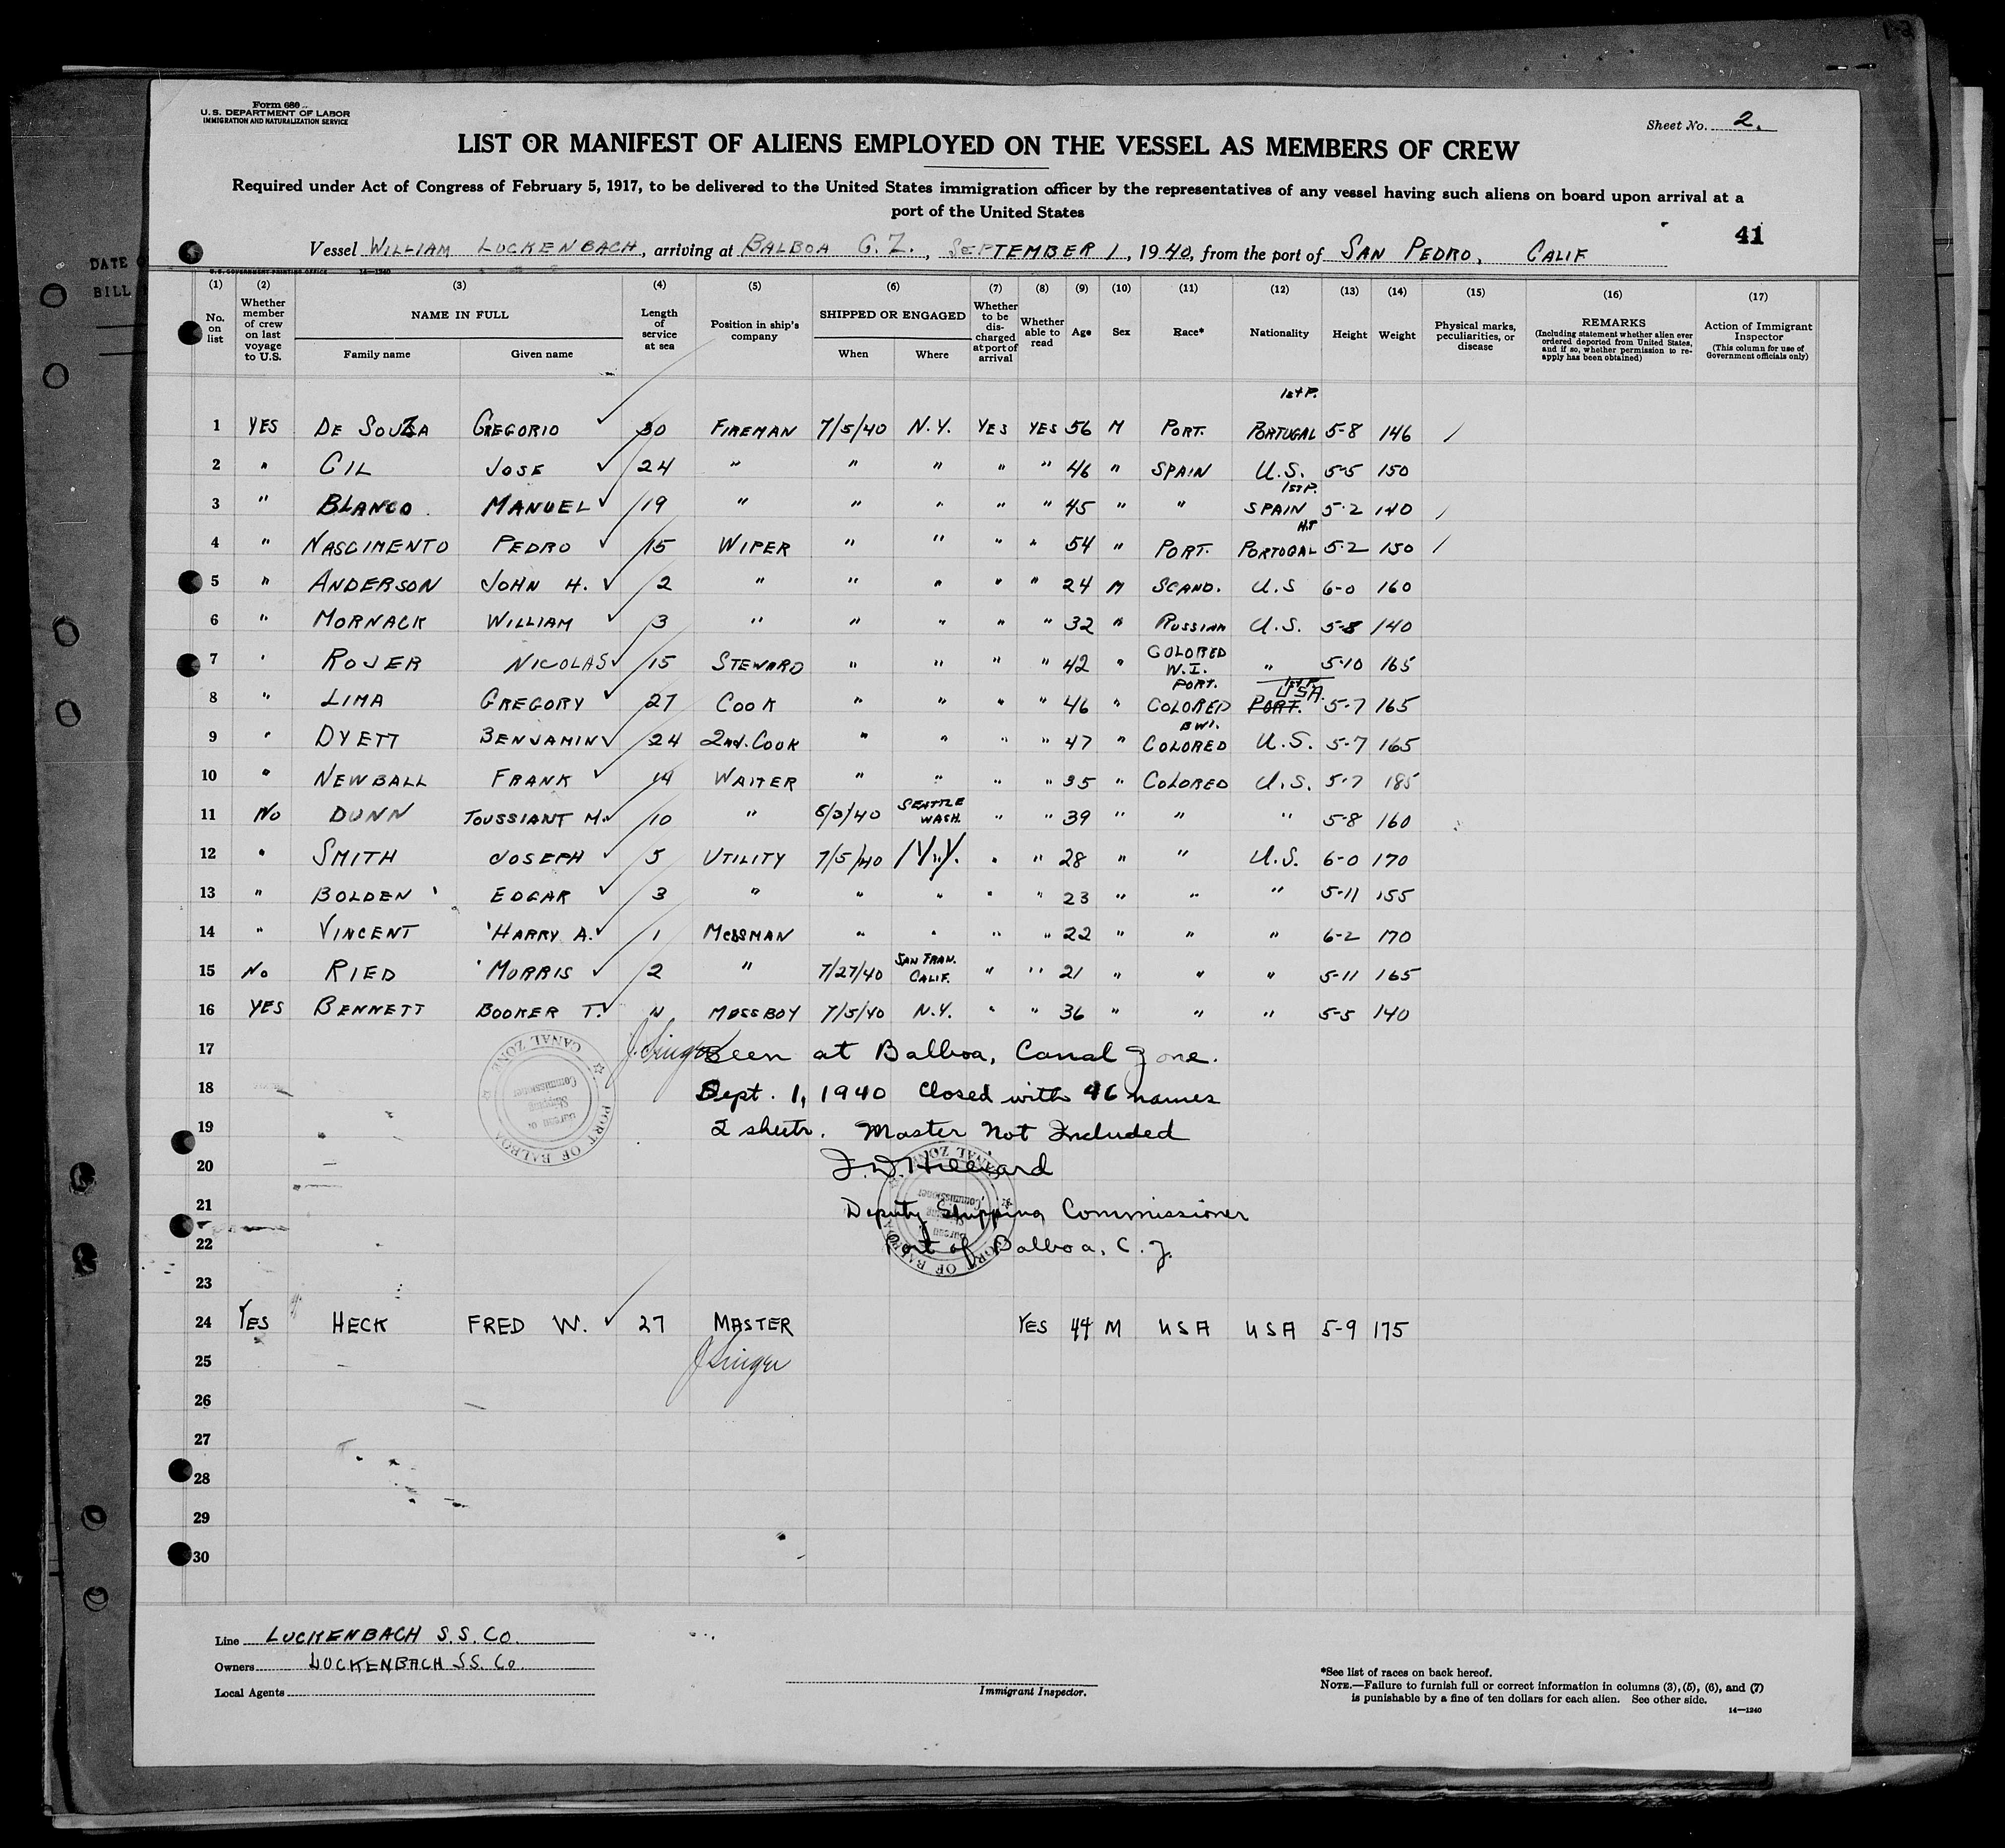 Form 680
U. S. DEPARTMENT OF LABOR
IMMIGRATION AND NATURALIZATION SERVICE
Sheet No. 2.
LIST OR MANIFEST OF ALIENS EMPLOYED ON THE VESSEL AS MEMBERS OF CREW
Required under Act of Congress of February 5, 1917, to be delivered to the United States immigration officer by the representatives of any vessel having such aliens on board upon arrival at a
port of the United States
41
Vessel WILLIAM LUCKENBACH, arriving at BALBOA C.Z., SEPTEMBER 1, 1940, from the port of SAN PEDRO, CALIF
U. S. GOVERNMENT PRINTING OFFICE 14—1240
DATE
BILL
(1) No. on list
(2) Whether member of crew on last voyage to U.S.
(3) NAME IN FULL Family name Given name
(4) Length of service at sea
(5) Position in ship's company
(6) SHIPPED OR ENGAGED When Where
(7) Whether to be discharged at port of arrival
(8) Whether able to read
(9) Age
(10) Sex
(11) Race*
(12) Nationality
(13) Height
(14) Weight
(15) Physical marks, peculiarities, or disease
(16) REMARKS (Including statement whether alien ever ordered deported from United States, and if so, whether permission to reapply has been obtained)
(17) Action of Immigrant Inspector (This column for use of Government officials only)
1st P.
1 YES DE SOUZA GREGORIO ✓ 30 FIREMAN 7/5/40 N.Y. YES YES 56 M PORT. PORTUGAL 5-8 146 /
2 " GIL JOSE ✓ 24 " " " " " 46 " SPAIN U.S. 5-5 150
1st P.
3 " BLANCO MANUEL ✓ 19 " " " " " 45 " " SPAIN 5-2 140 /
4 " NASCIMENTO PEDRO ✓ 15 WIPER " " " " 54 " PORT. PORTOGAL 5-2 150 /
5 " ANDERSON JOHN H. ✓ 2 " " " " " 24 M SCAND. U.S 6-0 160
6 " MORNACK WILLIAM ✓ 3 " " " " " 32 " RUSSIAN U.S. 5-8 140
7 " ROJER NICOLAS ✓ 15 STEWARD " " " " 42 " COLORED W.I. " 5-10 165
8 " LIMA GREGORY ✓ 27 COOK " " " " 46 " PORT. COLORED PORT. USA. 5-7 165
9 " DYETT BENJAMIN ✓ 24 2nd. COOK " " " " 47 " B.W.I. COLORED U.S. 5-7 165
10 " NEWBALL FRANK ✓ 14 WAITER " " " " 35 " COLORED U.S. 5-7 185
11 NO DUNN TOUSSIANT M. ✓ 10 " 8/3/40 SEATTLE WASH. " " 39 " " " 5-8 160
12 " SMITH JOSEPH ✓ 5 UTILITY 7/5/40 N.Y. " " 28 " " U.S. 6-0 170
13 " BOLDEN EDGAR ✓ 3 " " " " " 23 " " " 5-11 155
14 " VINCENT HARRY A. ✓ 1 MESSMAN " " " " 22 " " " 6-2 170
15 NO RIED MORRIS ✓ 2 " 7/27/40 SAN FRAN. CALIF. " " 21 " " " 5-11 165
16 YES BENNETT BOOKER T. ✓ MESSBOY 7/5/40 N.Y. " " 36 " " " 5-5 140
17 J. Singer Seen at Balboa, Canal Zone.
18 Sept. 1, 1940 Closed with 46 names
19 2 sheets. Master Not Included
20 J.D. Hilliard
21 Deputy Shipping Commissioner
22 Port of Balboa, C.Z.
PORT OF BALBOA ☆ CANAL ZONE ☆
Bureau of Shipping Commissioner
PORT OF BALBOA ☆ CANAL ZONE
Bureau Shipping Commissioner
23
24 YES HECK FRED W. ✓ 27 MASTER YES 44 M USA USA 5-9 175
25 J Singer
26
27
28
29
30
Line LUCKENBACH S.S. CO.
Owners LUCKENBACH SS. CO.
Local Agents
Immigrant Inspector.
*See list of races on back hereof.
NOTE.—Failure to furnish full or correct information in columns (3), (5), (6), and (7)
is punishable by a fine of ten dollars for each alien. See other side.
14—1240